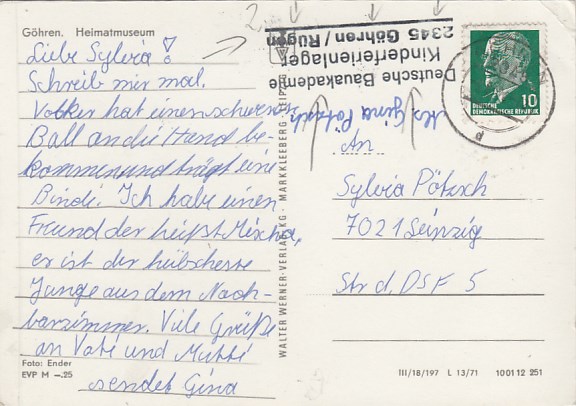 Göhren. Heimatmuseum
Liebe Sylvia!
Schreib mir mal.
Volker hat einen schweren
Ball an die Hand be-
kommen und trägt eine
Binde. Ich habe einen
Freund der heißt Mischa,
er ist der hübscheste
Junge aus dem Nach-
barzimmer. Viele Grüße
an Vati und Mutti
sendet Gina
Foto: Ender
EVP M –.25
WALTER WERNER-VERLAG KG · MARKKLEEBERG - LEIPZIG
Deutsche Bauakademie
Kinderferienlager
2345 Göhren / Rügen
Gina Pötzsch
DEUTSCHE
DEMOKRATISCHE REPUBLIK
10
An
Sylvia Pötzsch
7021 Leipzig
Str d. DSF 5
III/18/197 L 13/71 1001 12 251